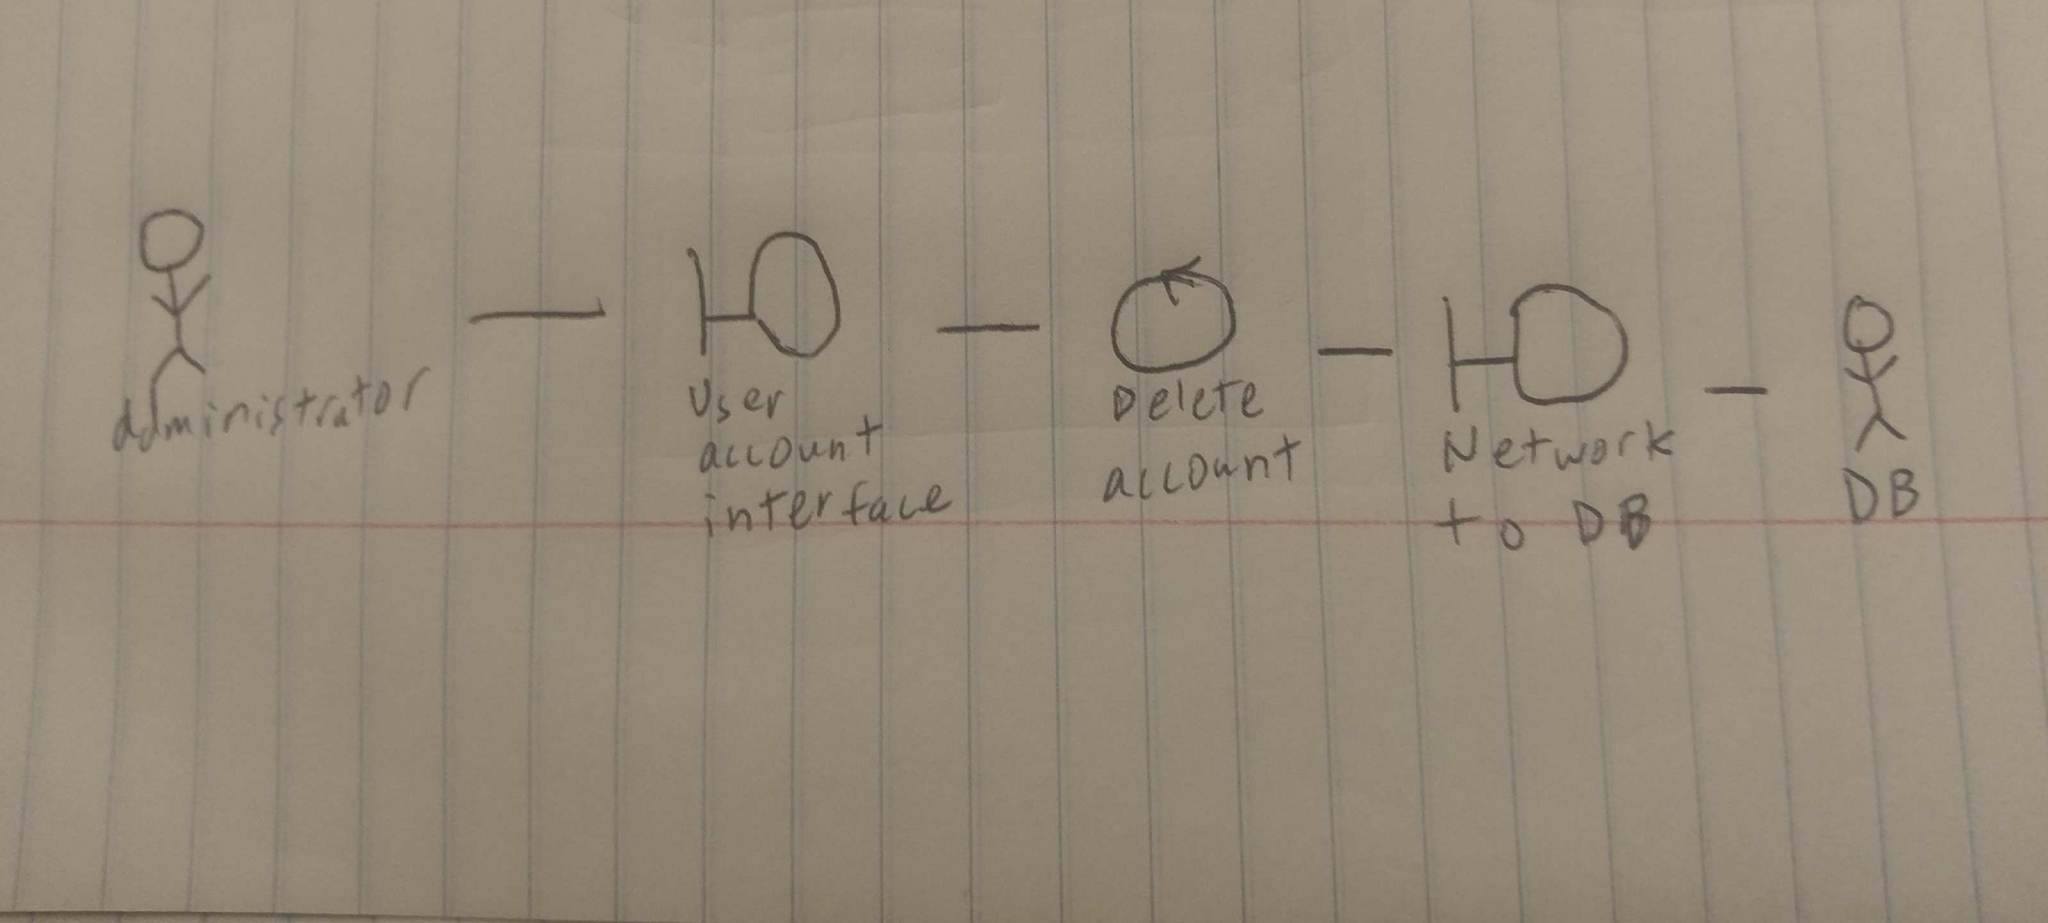 administrator
User
account
interface
Delete
account
Network
to DB
DB